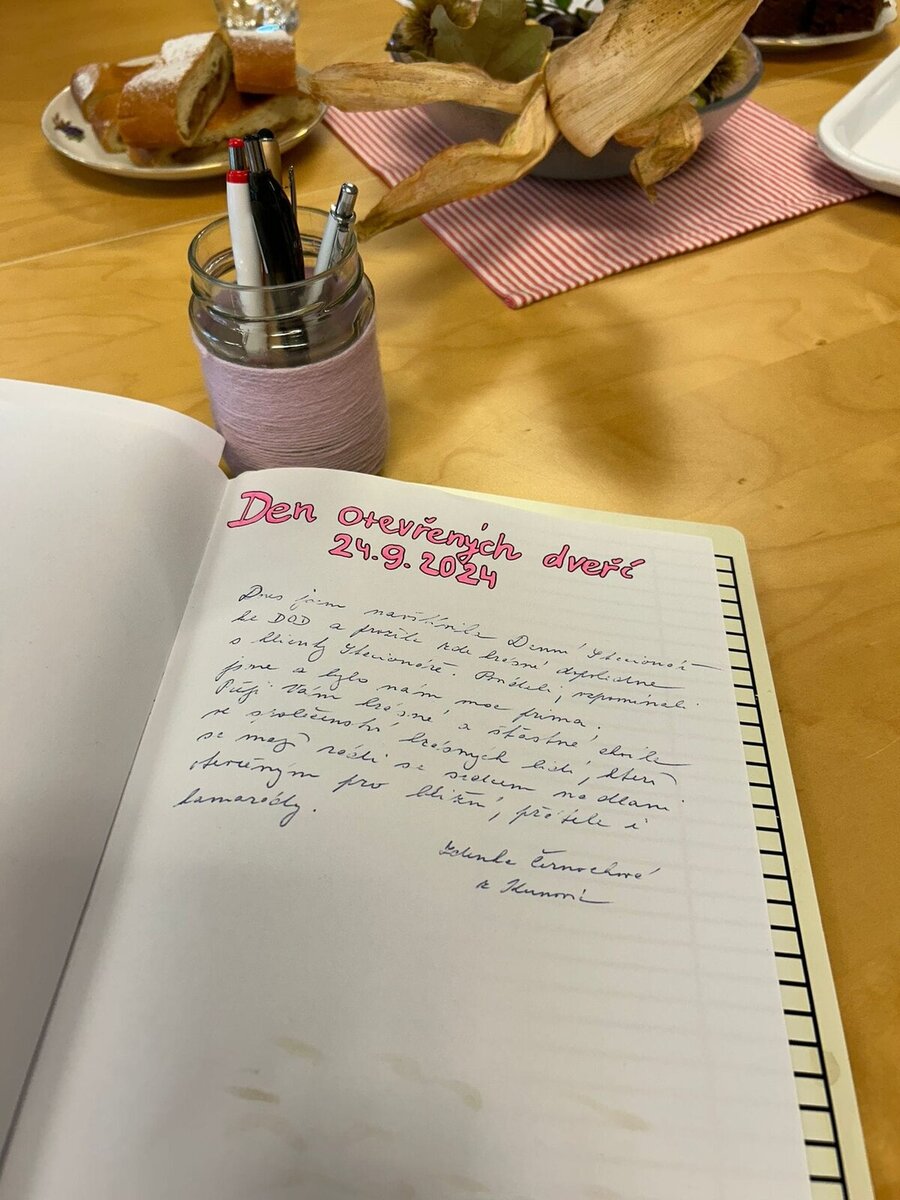 Den otevřených dveří
24.9.2024
Dnes jsem navštívila Denní stacionář
ke DOD a prožila zde krásné dopoledne
s klienty Stacionáře. Povídali, vzpomínali
jsme a bylo nám moc prima.
Přeji Vám krásné a šťastné chvíle
ve společenství krásných lidí, kteří
se mají rádi se srdcem na dlani
otevřeným pro bližní, přátele i
kamarády.
Zdenka Černochová
z Kunovic